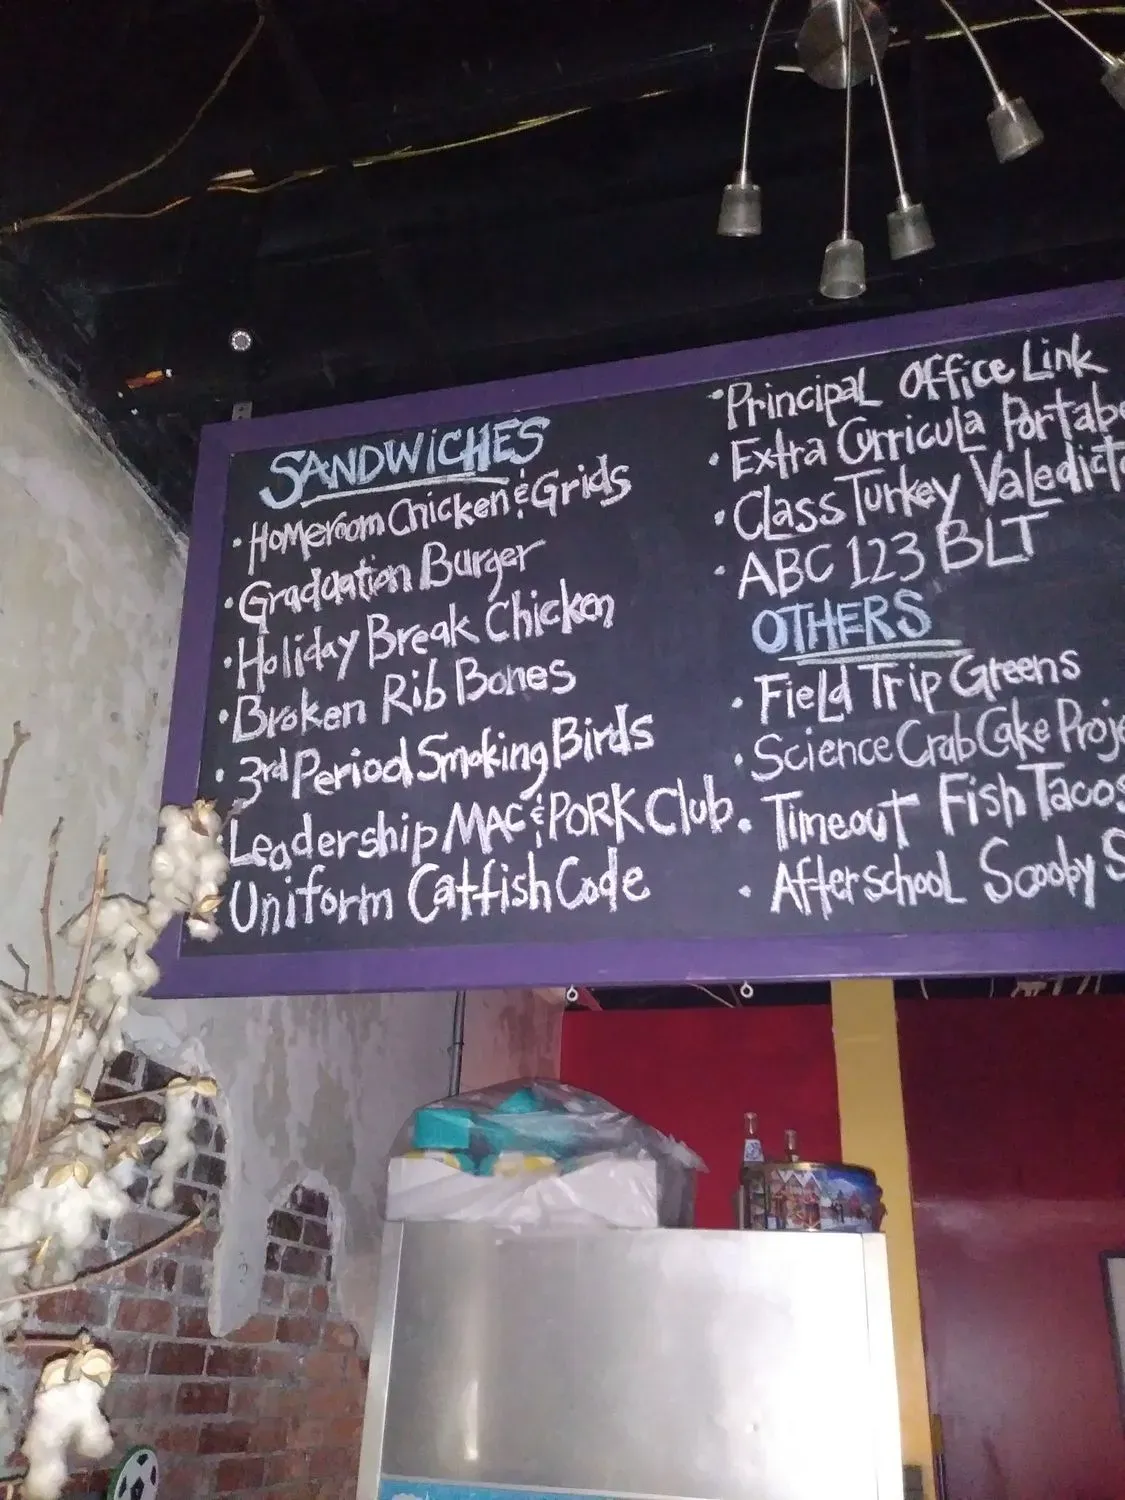 SANDWICHES
Homeroom Chicken & Grids
Graduation Burger
Holiday Break Chicken
Broken Rib Bones
3rd Period Smoking Birds
Leadership MAC & PORK Club
Uniform Catfish Code
Principal Office Link
Extra Curricula
Class Turkey
ABC 123 BLT
OTHERS
Field Trip Greens
Science Crab Cake
Timeout Fish Tacos
Afterschool Scooby